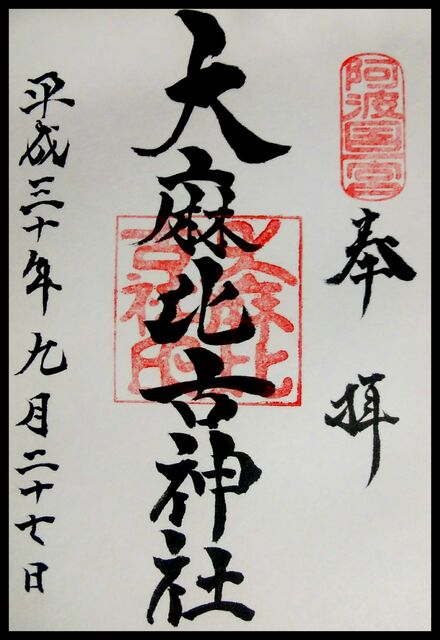 阿波国一宮
奉拝
大麻比古神社
大麻比古神社印
平成三十年九月二十七日